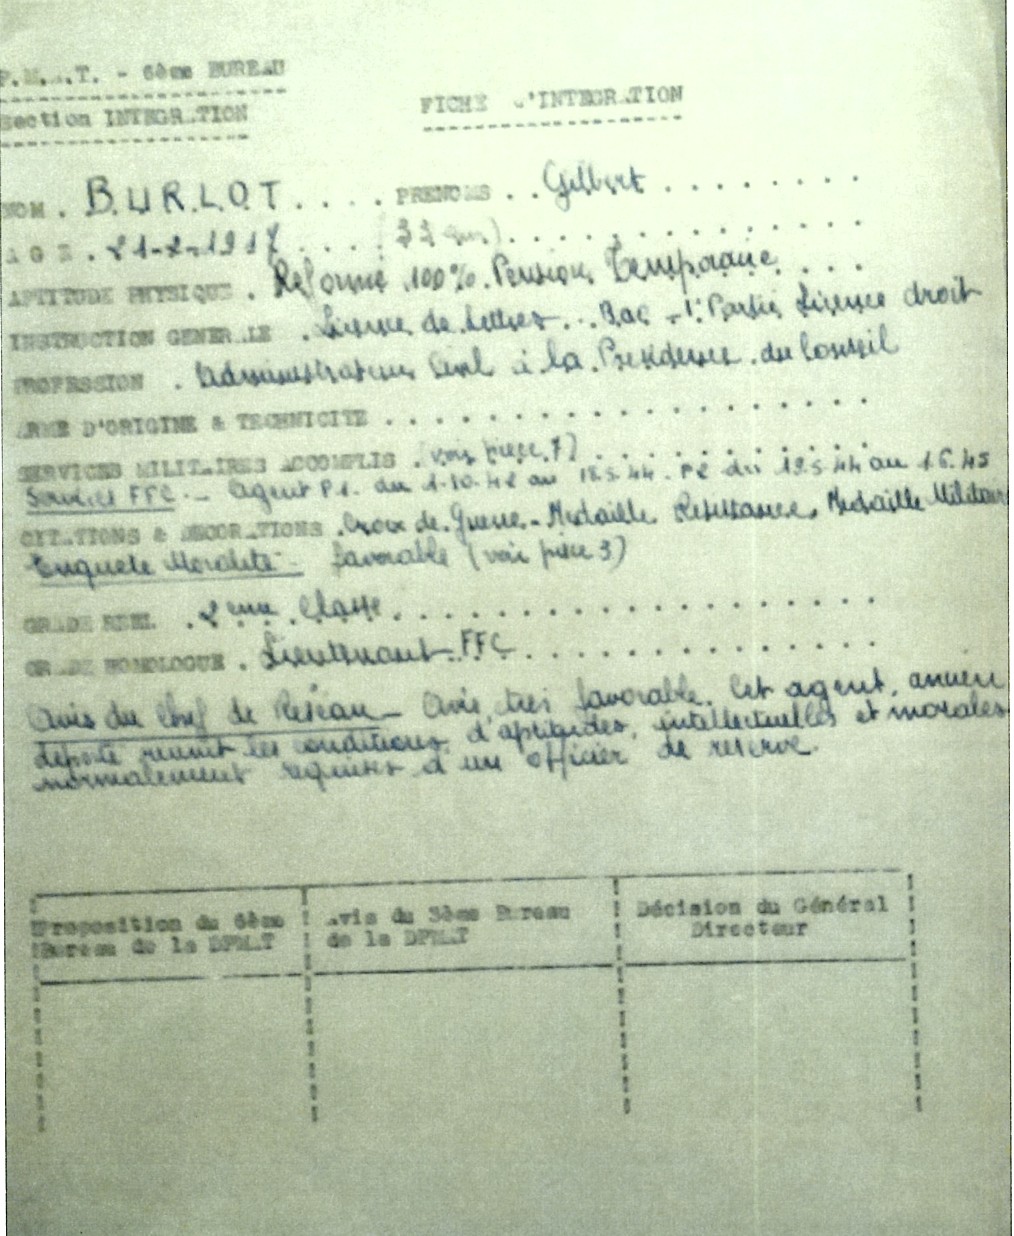 P.M.A.T. - 6ème BUREAU
Section INTEGRATION
FICHE d'INTEGRATION
NOM . BURLOT . . . . PRENOMS . . Gilbert . . . . . . . .
AGE . 21-2-1917 . . . . (33 ans) . . . . . . . . . . . . .
APTITUDE PHYSIQUE . Reformé 100% Pension Temporaire . . .
INSTRUCTION GENERALE . Licence de lettres . . Bac - 1° Partie Licence droit
PROFESSION . Administrateur Civil à la Présidence du Conseil
ARME D'ORIGINE & TECHNICITE . . . . . . . . . . . . . . . . .
SERVICES MILITAIRES ACCOMPLIS . (voir pièce 7) . . . . . . . . .
Services FFC - agent P1. du 1-10-42 au 18.5.44. P2 du 19.5.44 au 1.6.45
CITATIONS & DECORATIONS . Croix de Guerre - Medaille Résistance, Medaille Militaire
Enquete Moralité - favorable (voir pièce 3)
GRADE REEL . 2eme Classe . . . . . . . . . . . . . . . . .
GRADE HOMOLOGUE . Lieutenant FFC . . . . . . . . . . . . .
Avis du Chef de Réseau - Avis très favorable. Cet agent, ancien
déporté réunit les conditions d'aptitudes, intellectuelles et morales
normalement requises d'un officier de réserve.
Proposition du 6ème Bureau de la DPMAT
Avis du 3ème Bureau de la DPMAT
Décision du Général Directeur